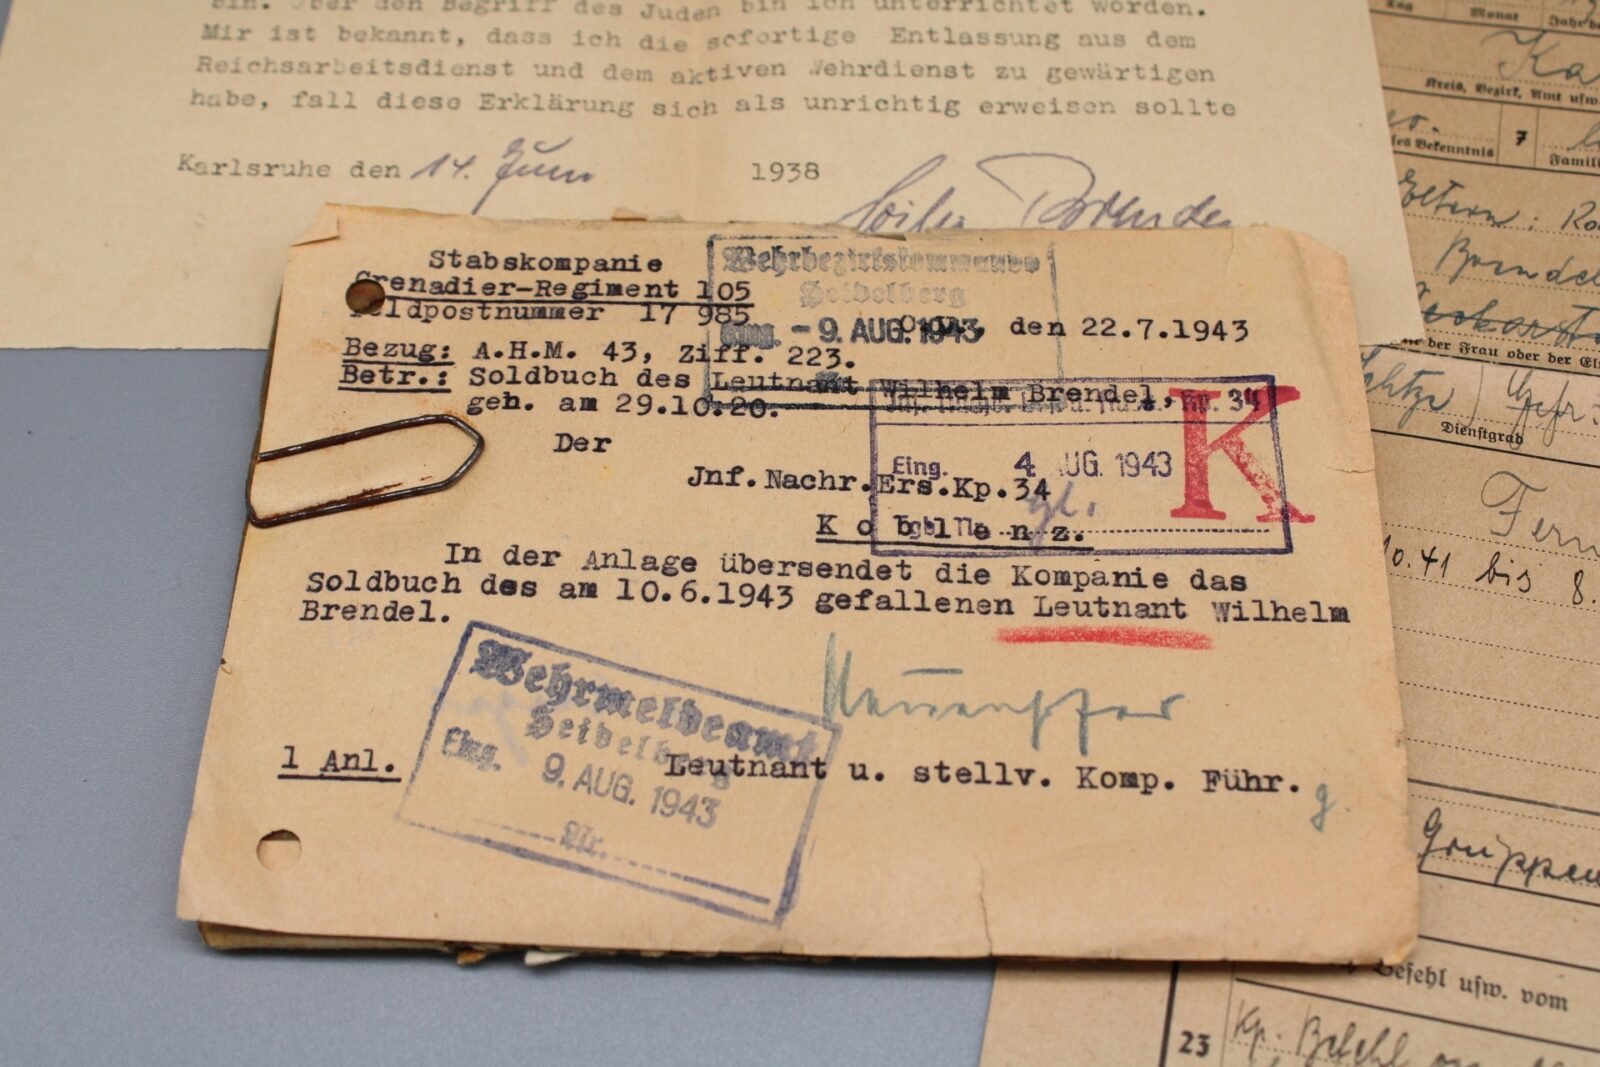 bin. Über den Begriff des Juden bin ich unterrichtet worden.
Mir ist bekannt, dass ich die sofortige Entlassung aus dem
Reichsarbeitsdienst und dem aktiven Wehrdienst zu gewärtigen
habe, fall diese Erklärung sich als unrichtig erweisen sollte
Karlsruhe den 14. Juni 1938
Stabskompanie
Grenadier-Regiment 105
Feldpostnummer 17 985
Wehrbezirkskommando
Heidelberg
Eing. - 9. AUG. 1943
den 22.7.1943
Bezug: A.H.M. 43, Ziff. 223.
Betr.: Soldbuch des Leutnant Wilhelm Brendel,
geh. am 29.10.20.
Kp. 34
Eing. 4 AUG. 1943
K
Der
Jnf.Nachr.Ers.Kp.34
Koblenz.
In der Anlage übersendet die Kompanie das
Soldbuch des am 10.6.1943 gefallenen Leutnant Wilhelm
Brendel.
Wehrmeldeamt
Heidelberg
Eing. 9. AUG. 1943
Nr.
1 Anl.
Leutnant u. stellv. Komp. Führ.
g.
Tag
Monat
Kreis, Bezirk, Amt usw.
7
Eltern:
Brendel
der Frau oder der
Gefr.
Dienstgrad
10.41 bis 8.
Gruppen
Befehl usw. vom
23
Kp. Befehl